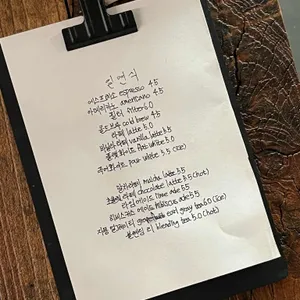 에스프레소 espresso 4.5
아메리카노 americano 4.5
필터 filter 6.0
콜드브루 cold brew 4.5
라떼 latte 5.0
바닐라 라떼 vanilla latte 5.5
플랫 화이트 flat white 5.0
flat white 5.5 (ice)
말차라떼 matcha latte 5.5
초콜릿 라떼 chocolate latte 5.5 (hot)
라임에이드 lime ade 5.5
히비스커스 에이드 hibiscus ade 5.5
earl gray tea 6.0 (ice)
블렌딩 티 blending tea 5.0 (hot)